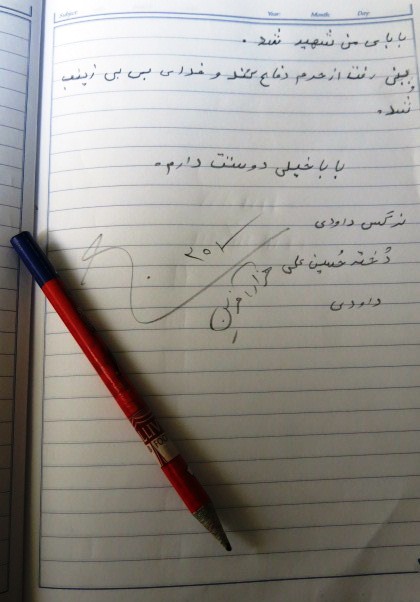 Subject Year Month Day
بابای من شهید شد .
یعنی رفت از حرم دفاع کند و فدای بی بی زینب
شد .
بابا خیلی دوستت دارم .
نرگس داودی
دُختر حُسین علی
داودی
هزار آفرین